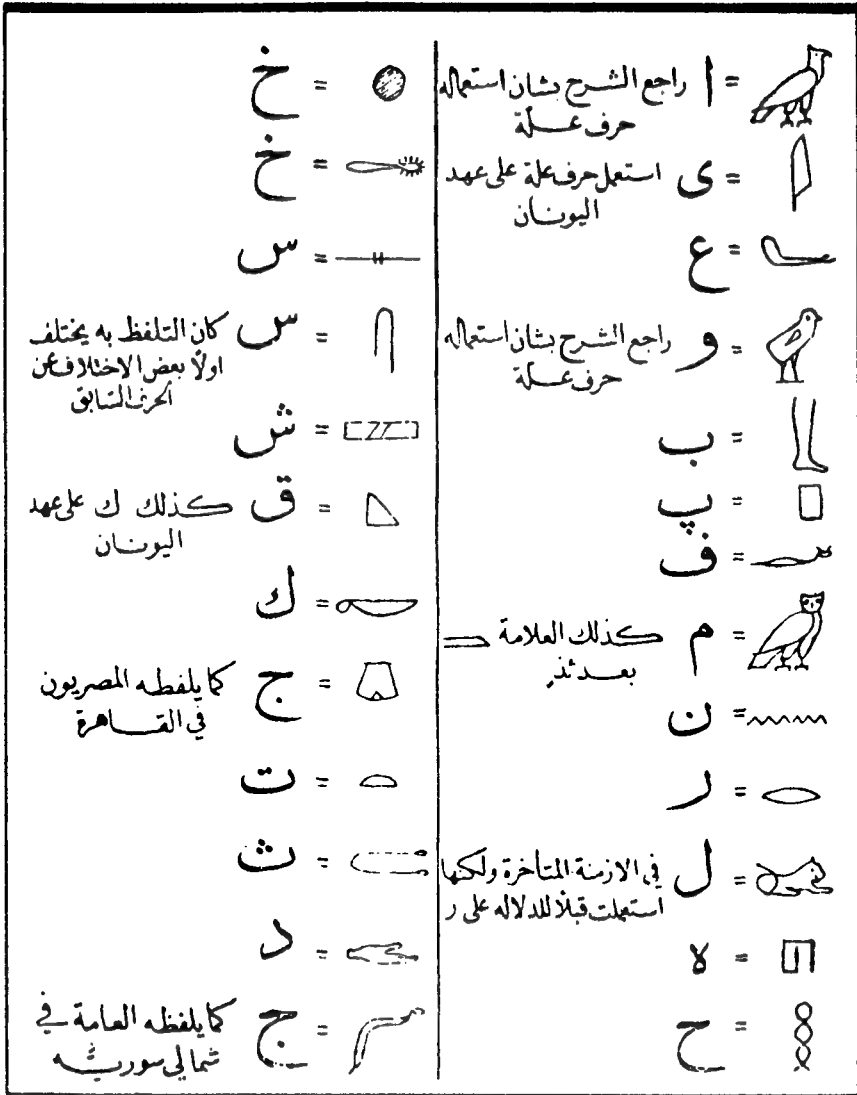 = ا راجع الشرح بشان استعماله
حرف علّة
= ى استعمل حرف علة على عهد
اليونان
= ع
= و راجع الشرح بشان استعماله
حرف علّة
= ب
= پ
= ف
= م كذلك العلامة
بعدئذٍ
= ن
= ر
= ل في الازمنة المتأخرة ولكنها
استعملت قبلاً للدلاله على ر
= ه
= ح
= خ
= خ
= س
= س كان التلفظ به يختلف
اولاً بعض الاختلاف عن
الحرف السّابق
= ش
= ق كذلك ك على عهد
اليونان
= ك
= ج كما يلفظه المصريون
في القاهرة
= ت
= ث
= د
= ج كما يلفظه العامة في
شمالي سوريّه